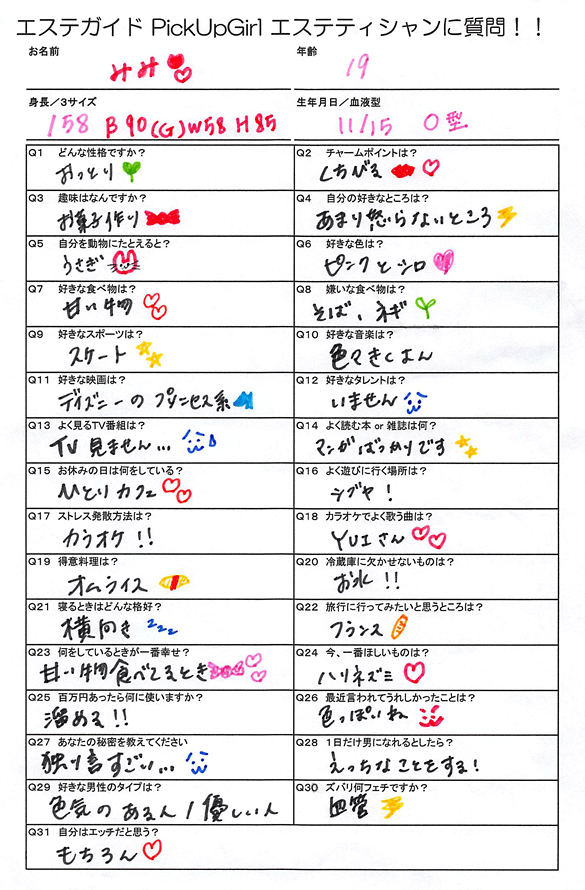 エステガイド PickUpGirl エステティシャンに質問！！
お名前
みみ
年齢
19
身長／3サイズ
158 B90(G)W58 H85
生年月日／血液型
11/15 O型
Q1 どんな性格ですか？
おっとり
Q2 チャームポイントは？
くちびる
Q3 趣味はなんですか？
お菓子作り
Q4 自分の好きなところは？
あまり怒らないところ
Q5 自分を動物にたとえると？
うさぎ
Q6 好きな色は？
ピンクとシロ
Q7 好きな食べ物は？
甘い物
Q8 嫌いな食べ物は？
そば、ネギ
Q9 好きなスポーツは？
スケート
Q10 好きな音楽は？
色々きくもん
Q11 好きな映画は？
ディズニーのプリンセス系
Q12 好きなタレントは？
いません
Q13 よく見るTV番組は？
TV見ません...
Q14 よく読む本 or 雑誌は何？
マンガばっかりです
Q15 お休みの日は何をしている？
ひとりカフェ
Q16 よく遊びに行く場所は？
シブヤ！
Q17 ストレス発散方法は？
カラオケ！！
Q18 カラオケでよく歌う曲は？
YUIさん
Q19 得意料理は？
オムライス
Q20 冷蔵庫に欠かせないものは？
お水！！
Q21 寝るときはどんな格好？
横向き zzz
Q22 旅行に行ってみたいと思うところは？
フランス
Q23 何をしているときが一番幸せ？
甘い物食べてるとき
Q24 今、一番ほしいものは？
ハリネズミ
Q25 百万円あったら何に使いますか？
溜める！！
Q26 最近言われてうれしかったことは？
色っぽいね
Q27 あなたの秘密を教えてください
独り言すごい...
Q28 1日だけ男になれるとしたら？
えっちなことをする！
Q29 好きな男性のタイプは？
色気のある人/優しい人
Q30 ズバリ何フェチですか？
血管
Q31 自分はエッチだと思う？
もちろん